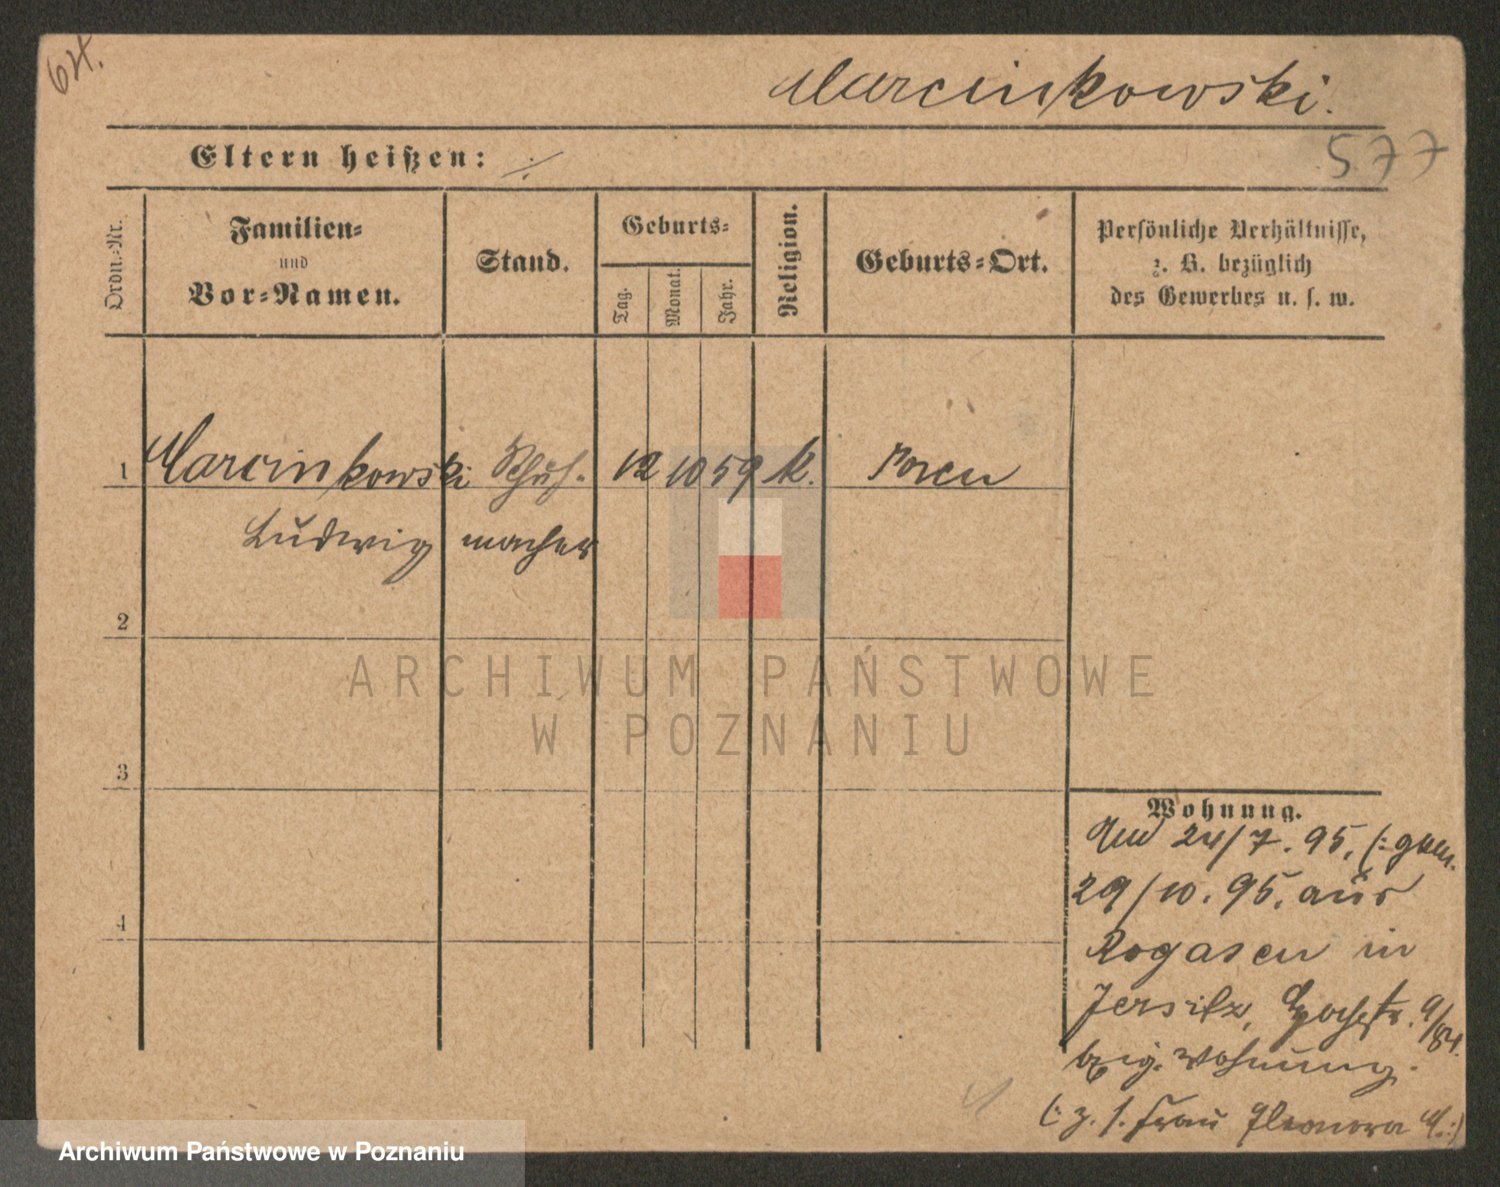 64.
Marcinkowski.
577
Eltern heißen: ./.
Ordn.-Nr.
Familien-
und
Vor-Namen.
Stand.
Geburts-
Tag.
Monat.
Jahr.
Religion.
Geburts-Ort.
Persönliche Verhältnisse,
z. B. bezüglich
des Gewerbes u. s. w.
1 Marcinkowski Schuh- 12 10 59 k. Posen
Ludwig macher
2
3
4
Wohnung.
24/7. 95. (: gem.
29/10. 95. aus
Rogasen in
Jersitz, 9/84.
Wohnung.
(: z. s. Frau Eleonora M. :)
ARCHIWUM PAŃSTWOWE
W POZNANIU
Archiwum Państwowe w Poznaniu